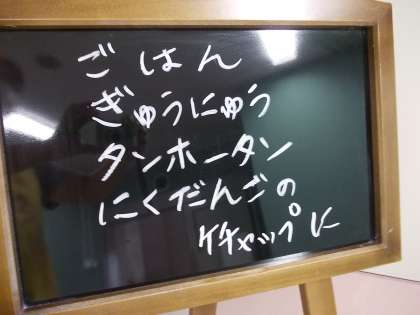 ごはん
ぎゅうにゅう
タンホータン
にくだんごの
ケチャップに